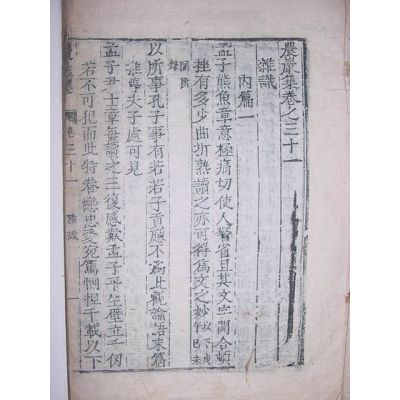 農巖集卷之三十一
雜識
內篇一
孟子熊魚章意極痛切使人警省且其文字開合頓
挫有多少曲折熟讀之亦可得爲文之妙
以所事孔子事有若若子貢應不爲此觀論語末篇
推尊夫子處可見
孟子尹士章每讀之三復感歎孟子平生壁立千仞
若不可犯而此特眷戀忠愛宛篤惻怛千載以下
卷三十一 雜識 一